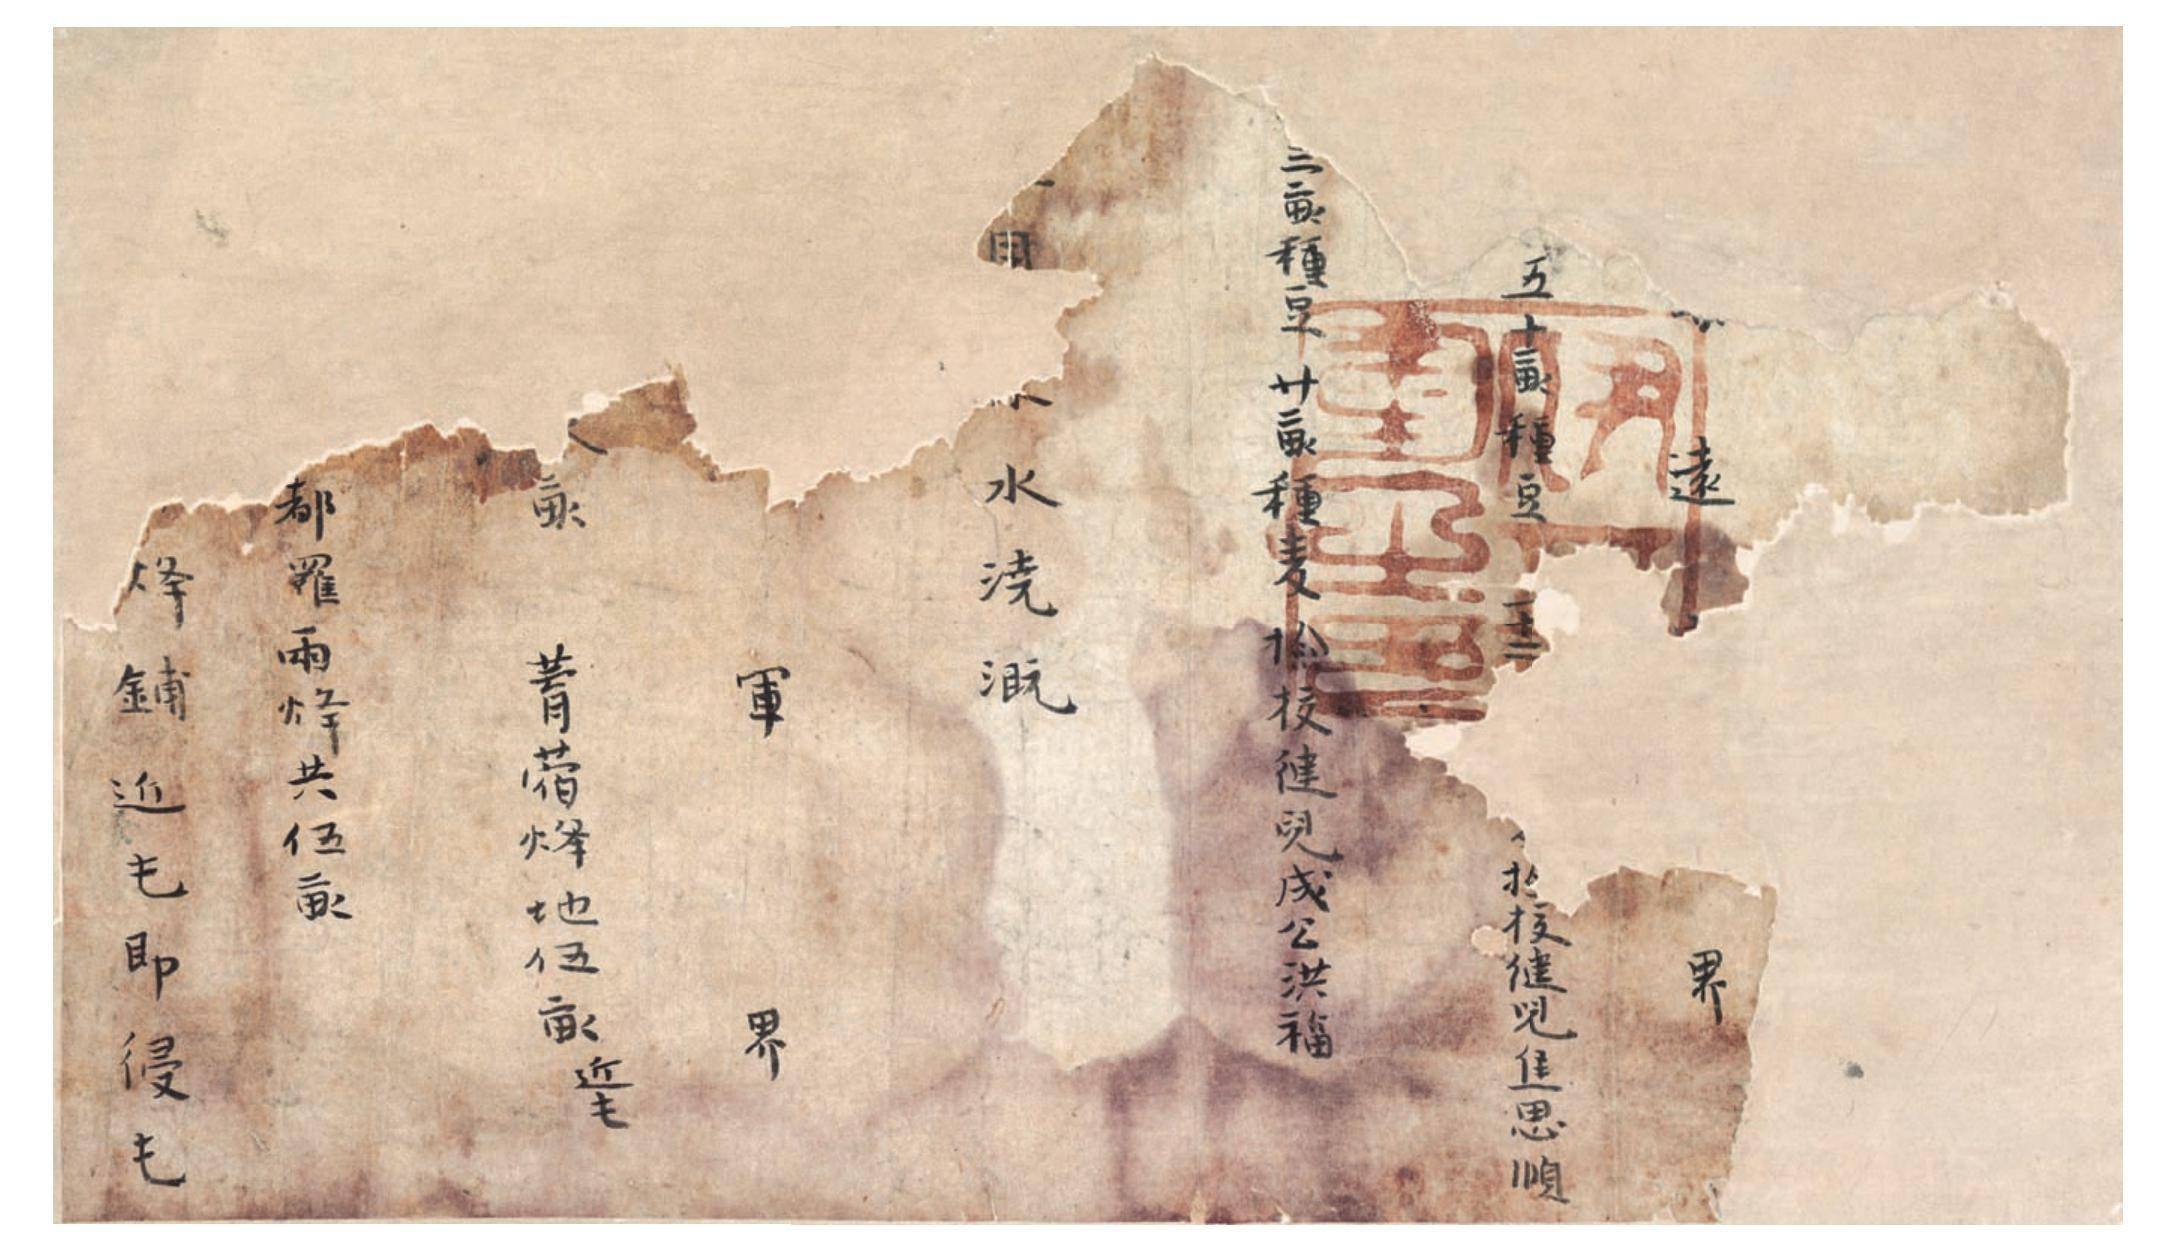 遠 界
五十畝種豆 一十二 檢校健兒焦思順
三畝種豆 廿畝種麦 檢校健兒成公洪福
用 水澆溉
軍 界
畝 菁蓿烽地伍畝近屯
都羅兩烽共伍畝
烽鋪近屯即侵屯